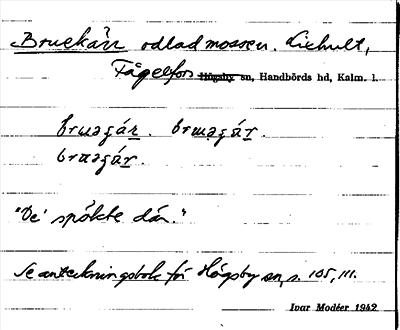 Bruekärr odlad mosse. Liehult,
Fågelfors ~~Högsby~~ sn, Handbörds hd, Kalm. l.
"De' spökte där."
Se anteckningsbok för Högsby sn, s. 105, 111.
Ivar Modéer 1942